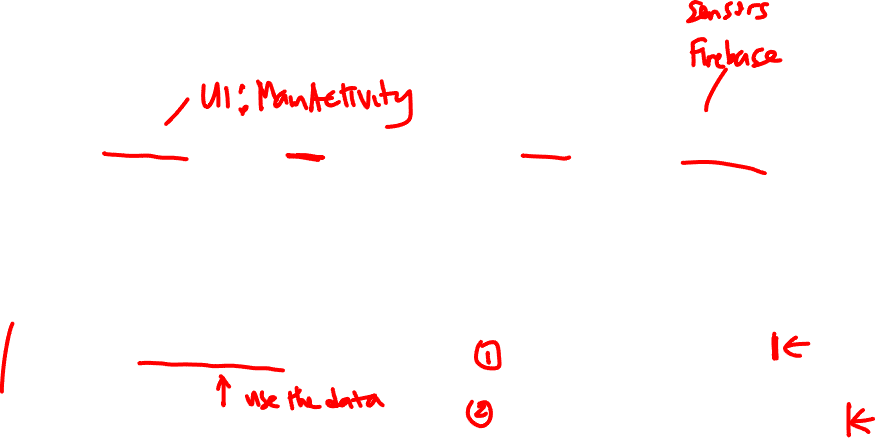 Sensors
Firebase
UI: MainActivity
①
use the data
②